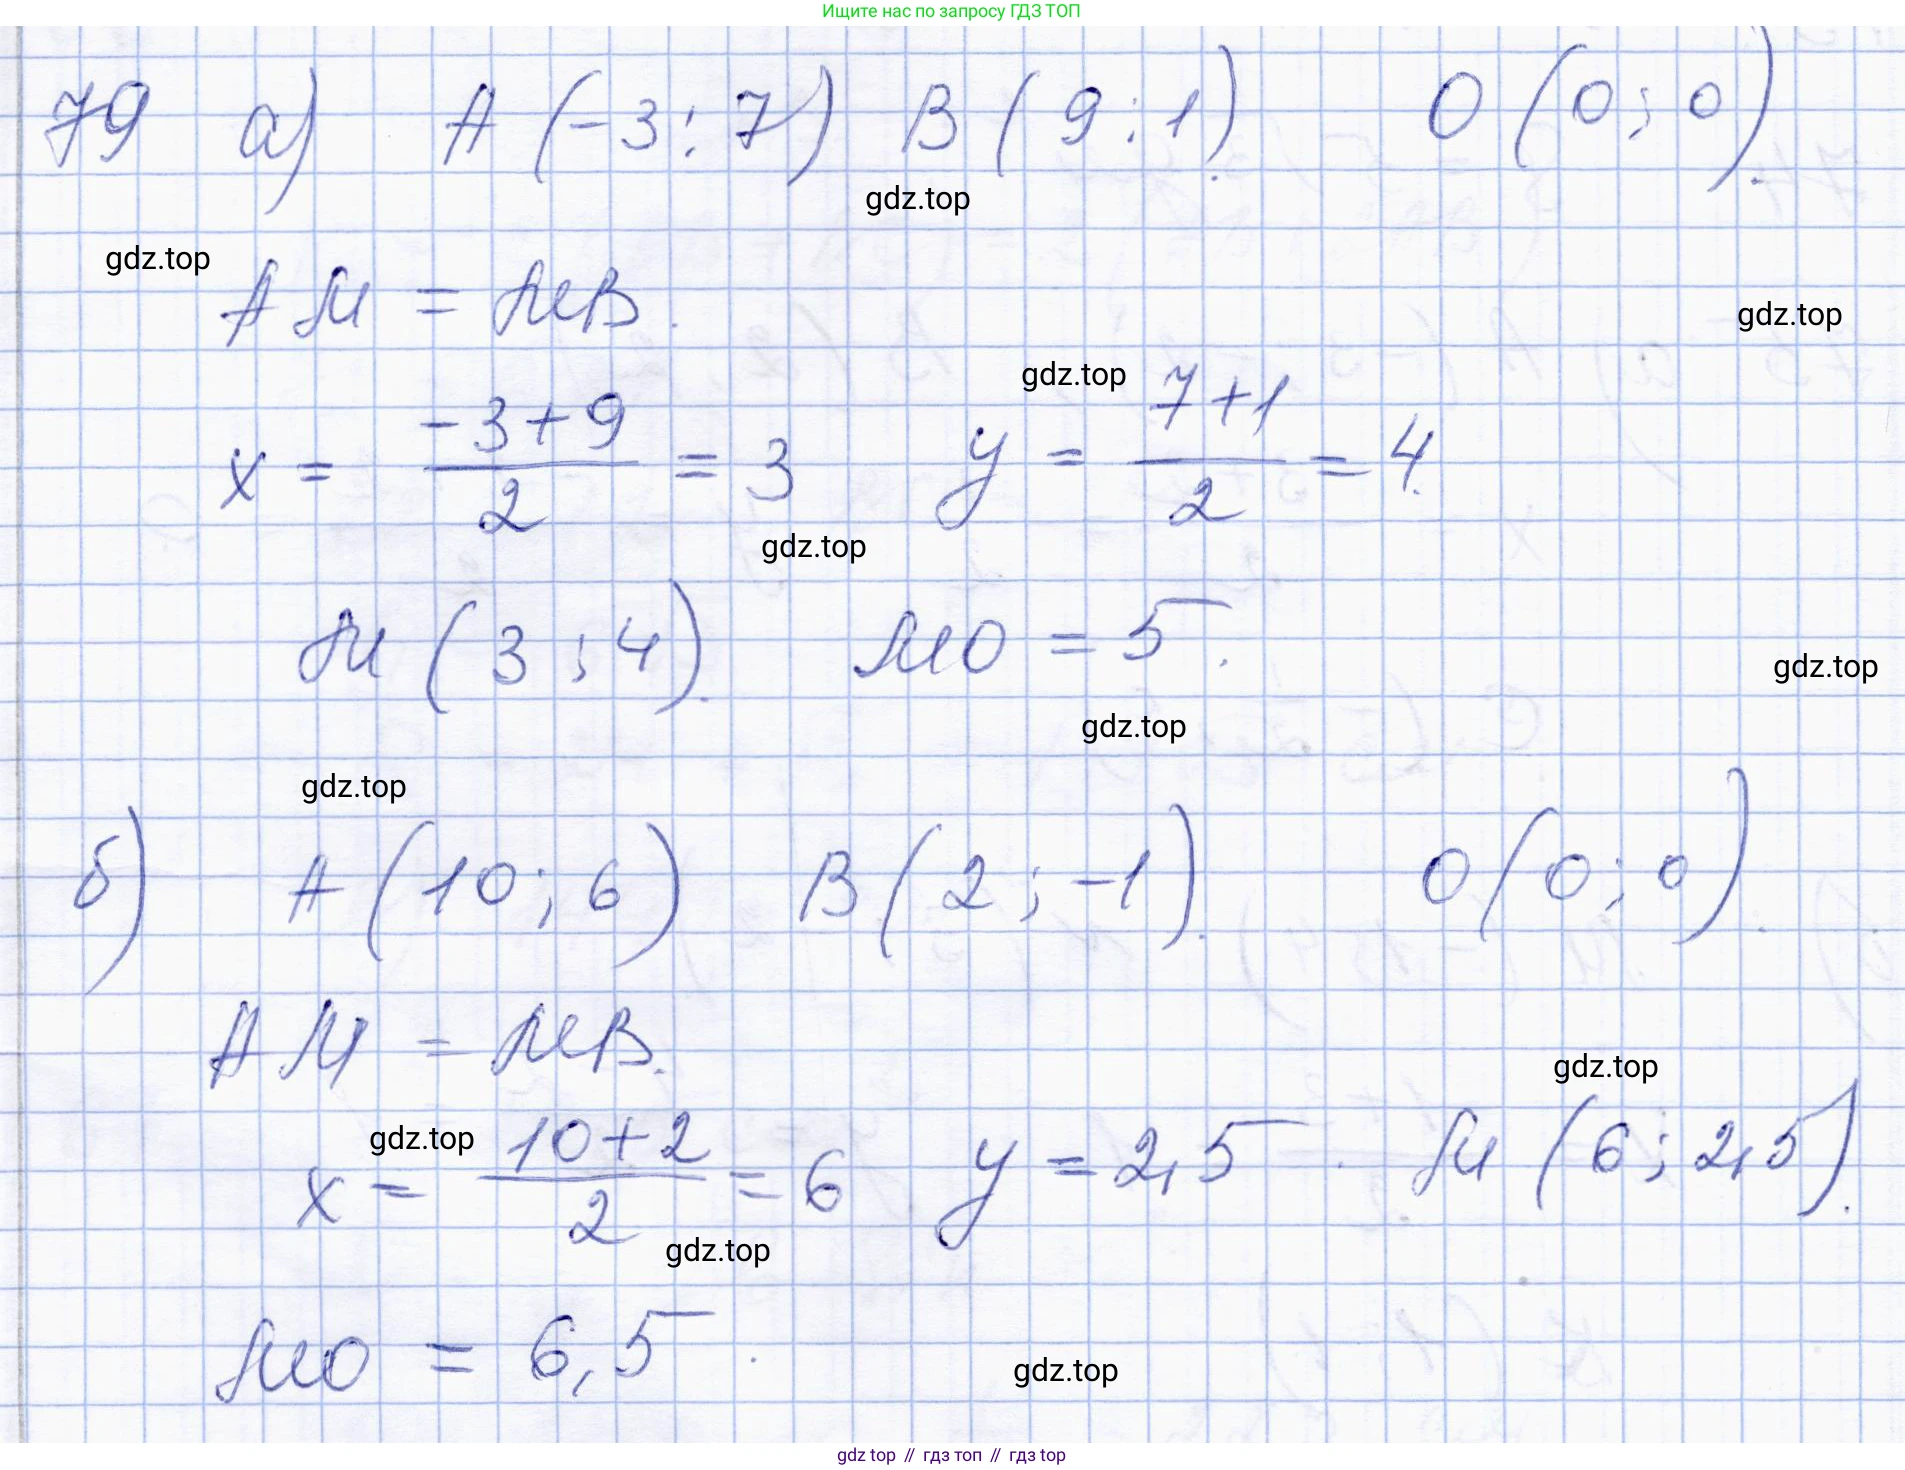 Ищите нас по запросу ГДЗ ТОП
79 а) A (-3; 7) B (9; 1). O (0; 0).
gdz.top
gdz.top
AM = MB.
gdz.top
gdz.top
x = (-3+9)/2 = 3 y = (7+1)/2 = 4.
gdz.top
M (3; 4). MO = 5.
gdz.top
gdz.top
gdz.top
б) A (10; 6) B (2; -1). O (0; 0).
AM = MB.
gdz.top
gdz.top
x = (10+2)/2 = 6 y = 2,5. M (6; 2,5).
gdz.top
MO = 6,5.
gdz.top
gdz top // гдз топ // гдз top